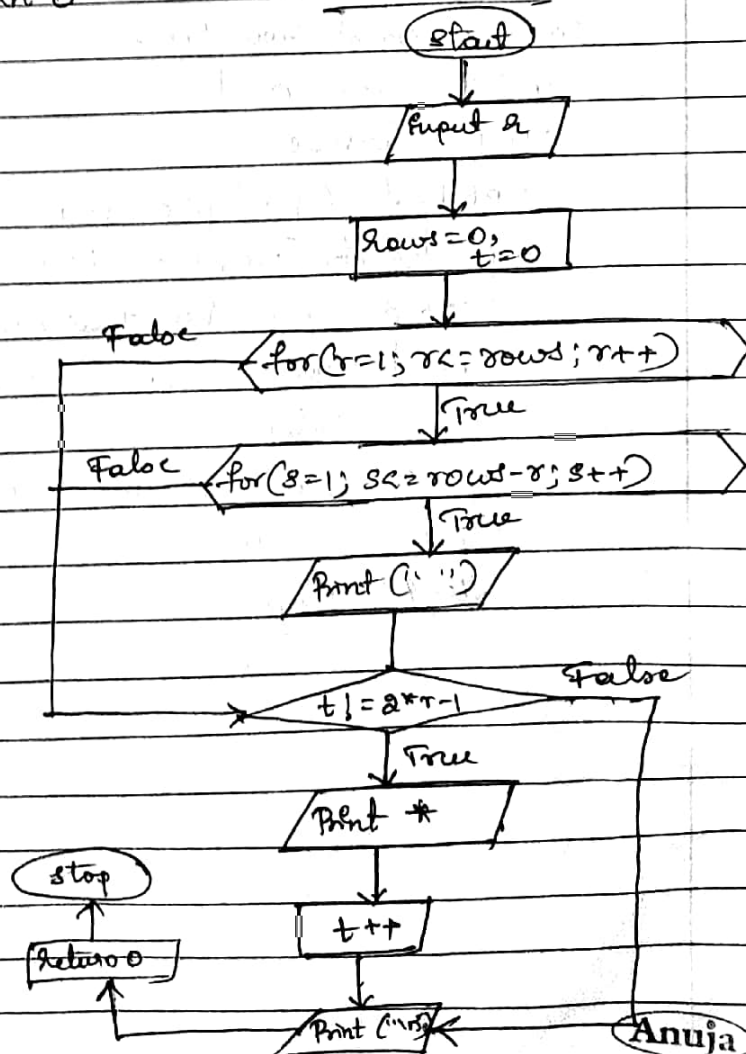 start
Input r
rows=0,
t=0
False
for(r=1; r<=rows; r++)
True
False
for(s=1; s<=rows-r; s++)
True
Print (" ")
False
t!=2*r-1
True
Print *
stop
t++
return 0
Print ("\n")
Anuja